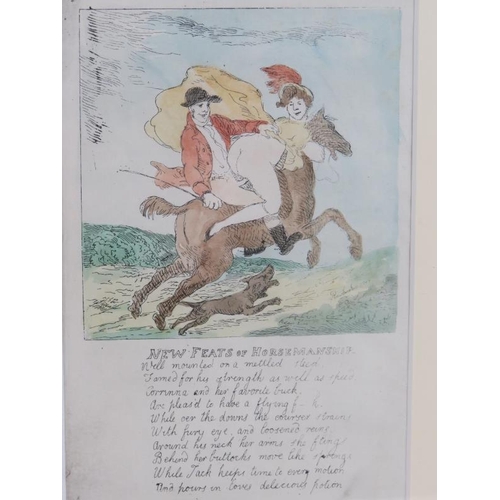 NEW FEATS OF HORSEMANSHIP.
Well mounted on a mettled steed
Famed for his strength as well as speed
Corrinna and her favorite buck
Are pleas'd to have a flying f__k
While o'er the downs the courser strains
With fiery eye, and loosened reins
Around his neck her arms she flings
Behind her buttocks move like springs
While Jack keeps time to every motion
And pours in loves delicious potion